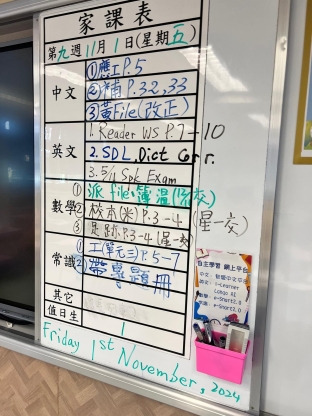 家課表
第九週 11月1日(星期五)
中文
①應工P.5
②補P.32,33
③黃File(改正)
英文
1. Reader WS P.7-10
2. SDL, Dict Corr.
3. 5/11 Spk Exam
數學
①派File·簿溫(後交)
②校本(米)P.3-4(星一交)
③足跡P.3-4(星一交)
常識
①工(單元三)P.5-7
②帶專題冊
其它
值日生
1
Friday 1st November, 2024
自主學習 網上平台